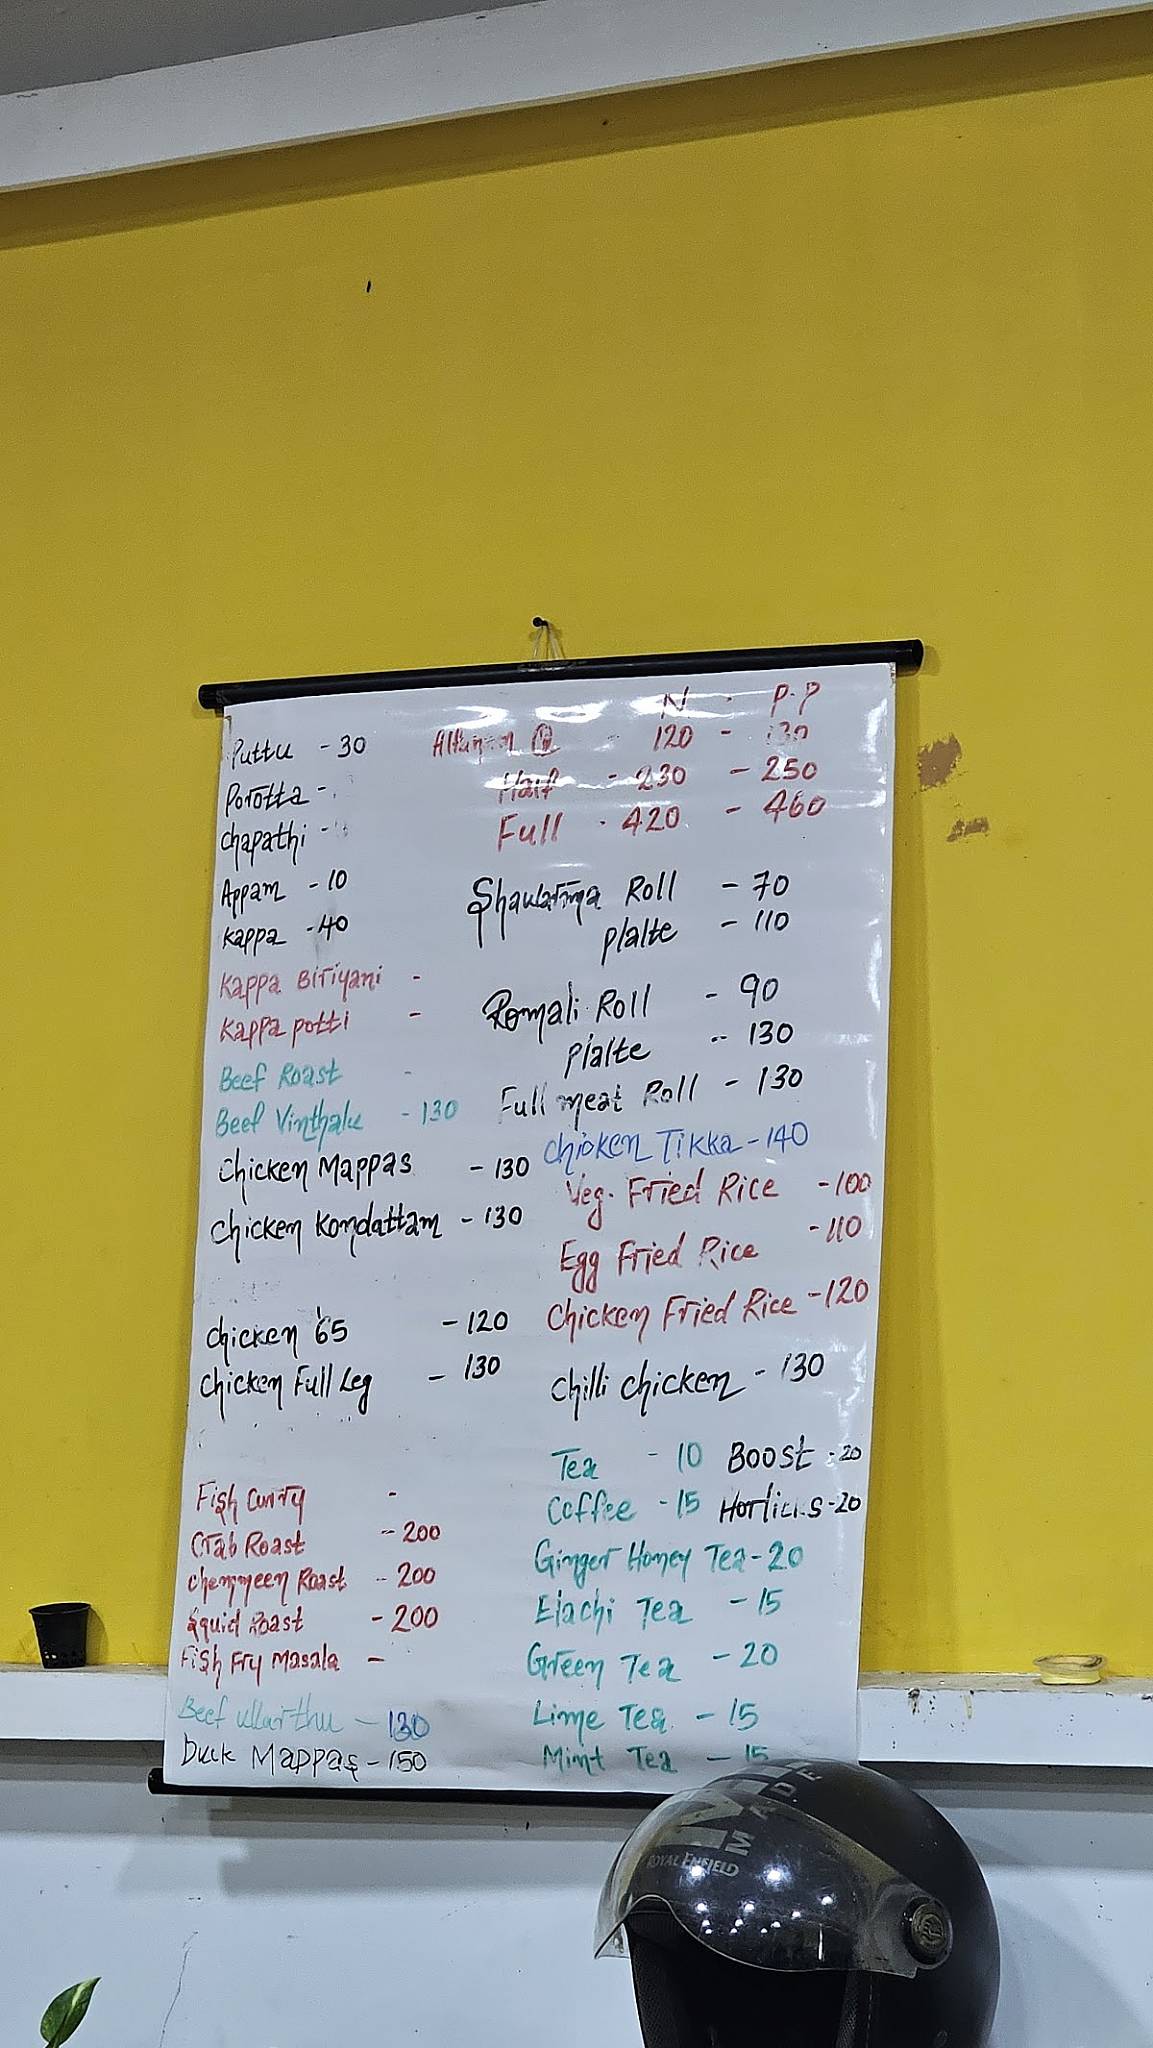 Puttu - 30
Porotta -
Chapathi -
Appam - 10
Kappa - 40
Kappa Biriyani -
Kappa potti -
Beef Roast -
Beef Vinthalu - 130
Chicken Mappas - 130
Chicken Kondattam - 130
Chicken 65 - 120
Chicken Full Leg - 130
Fish Curry -
Crab Roast - 200
Chemmeen Roast - 200
Squid Roast - 200
Fish Fry Masala -
Beef ullarthu - 130
Duck Mappas - 150
N - P.P
Q - 120 - 130
Half - 230 - 250
Full - 420 - 460
Shawarma Roll - 70
plalte - 110
Romali Roll - 90
plalte - 130
Full meat Roll - 130
Chicken Tikka - 140
Veg. Fried Rice - 100
Egg Fried Rice - 110
Chicken Fried Rice - 120
Chilli chicken - 130
Tea - 10 Boost - 20
Coffee - 15 Horlicks - 20
Ginger Honey Tea - 20
Elachi Tea - 15
Green Tea - 20
Lime Tea - 15
Mint Tea - 15
MADE
ROYAL ENFIELD